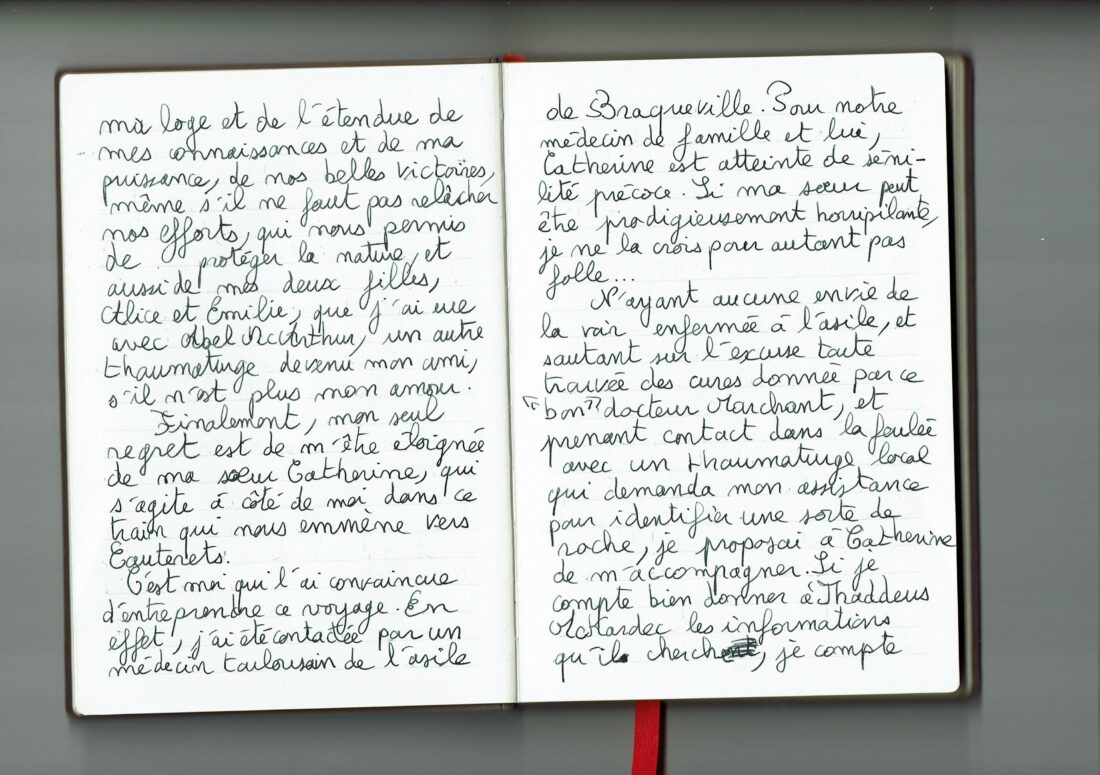 ma loge et de l'étendue de
mes connaissances et de ma
puissance, de nos belles victoires,
même s'il ne faut pas relâcher
nos efforts, qui nous permis
de protéger la nature, et
aussi de mes deux filles,
Alice et Emilie, que j'ai eue
avec Abel McArthur, un autre
thaumaturge devenu mon ami,
s'il n'est plus mon amour.
Finalement, mon seul
regret est de m'être eloignée
de ma sœur Catherine, qui
s'agite à côté de moi dans ce
train qui nous emmène vers
Cauterets.
C'est moi qui l'ai convaincue
d'entreprendre ce voyage. En
effet, j'ai été contactée par un
médecin toulousain de l'asile
de Braqueville. Pour notre
médecin de famille et lui,
Catherine est atteinte de séni-
lité précoce. Si ma sœur peut
être prodigieusement horripilante,
je ne la crois pour autant pas
folle...
N'ayant aucune envie de
la voir enfermée à l'asile, et
sautant sur l'excuse toute
trouvée des cures donnée par ce
"bon" docteur Marchant, et
prenant contact dans la foulée
avec un thaumaturge local
qui demanda mon assistance
pour identifier une sorte de
roche, je proposai à Catherine
de m'accompagner. Si je
compte bien donner à Thaddeus
McHardec les informations
qu'il cherche, je compte